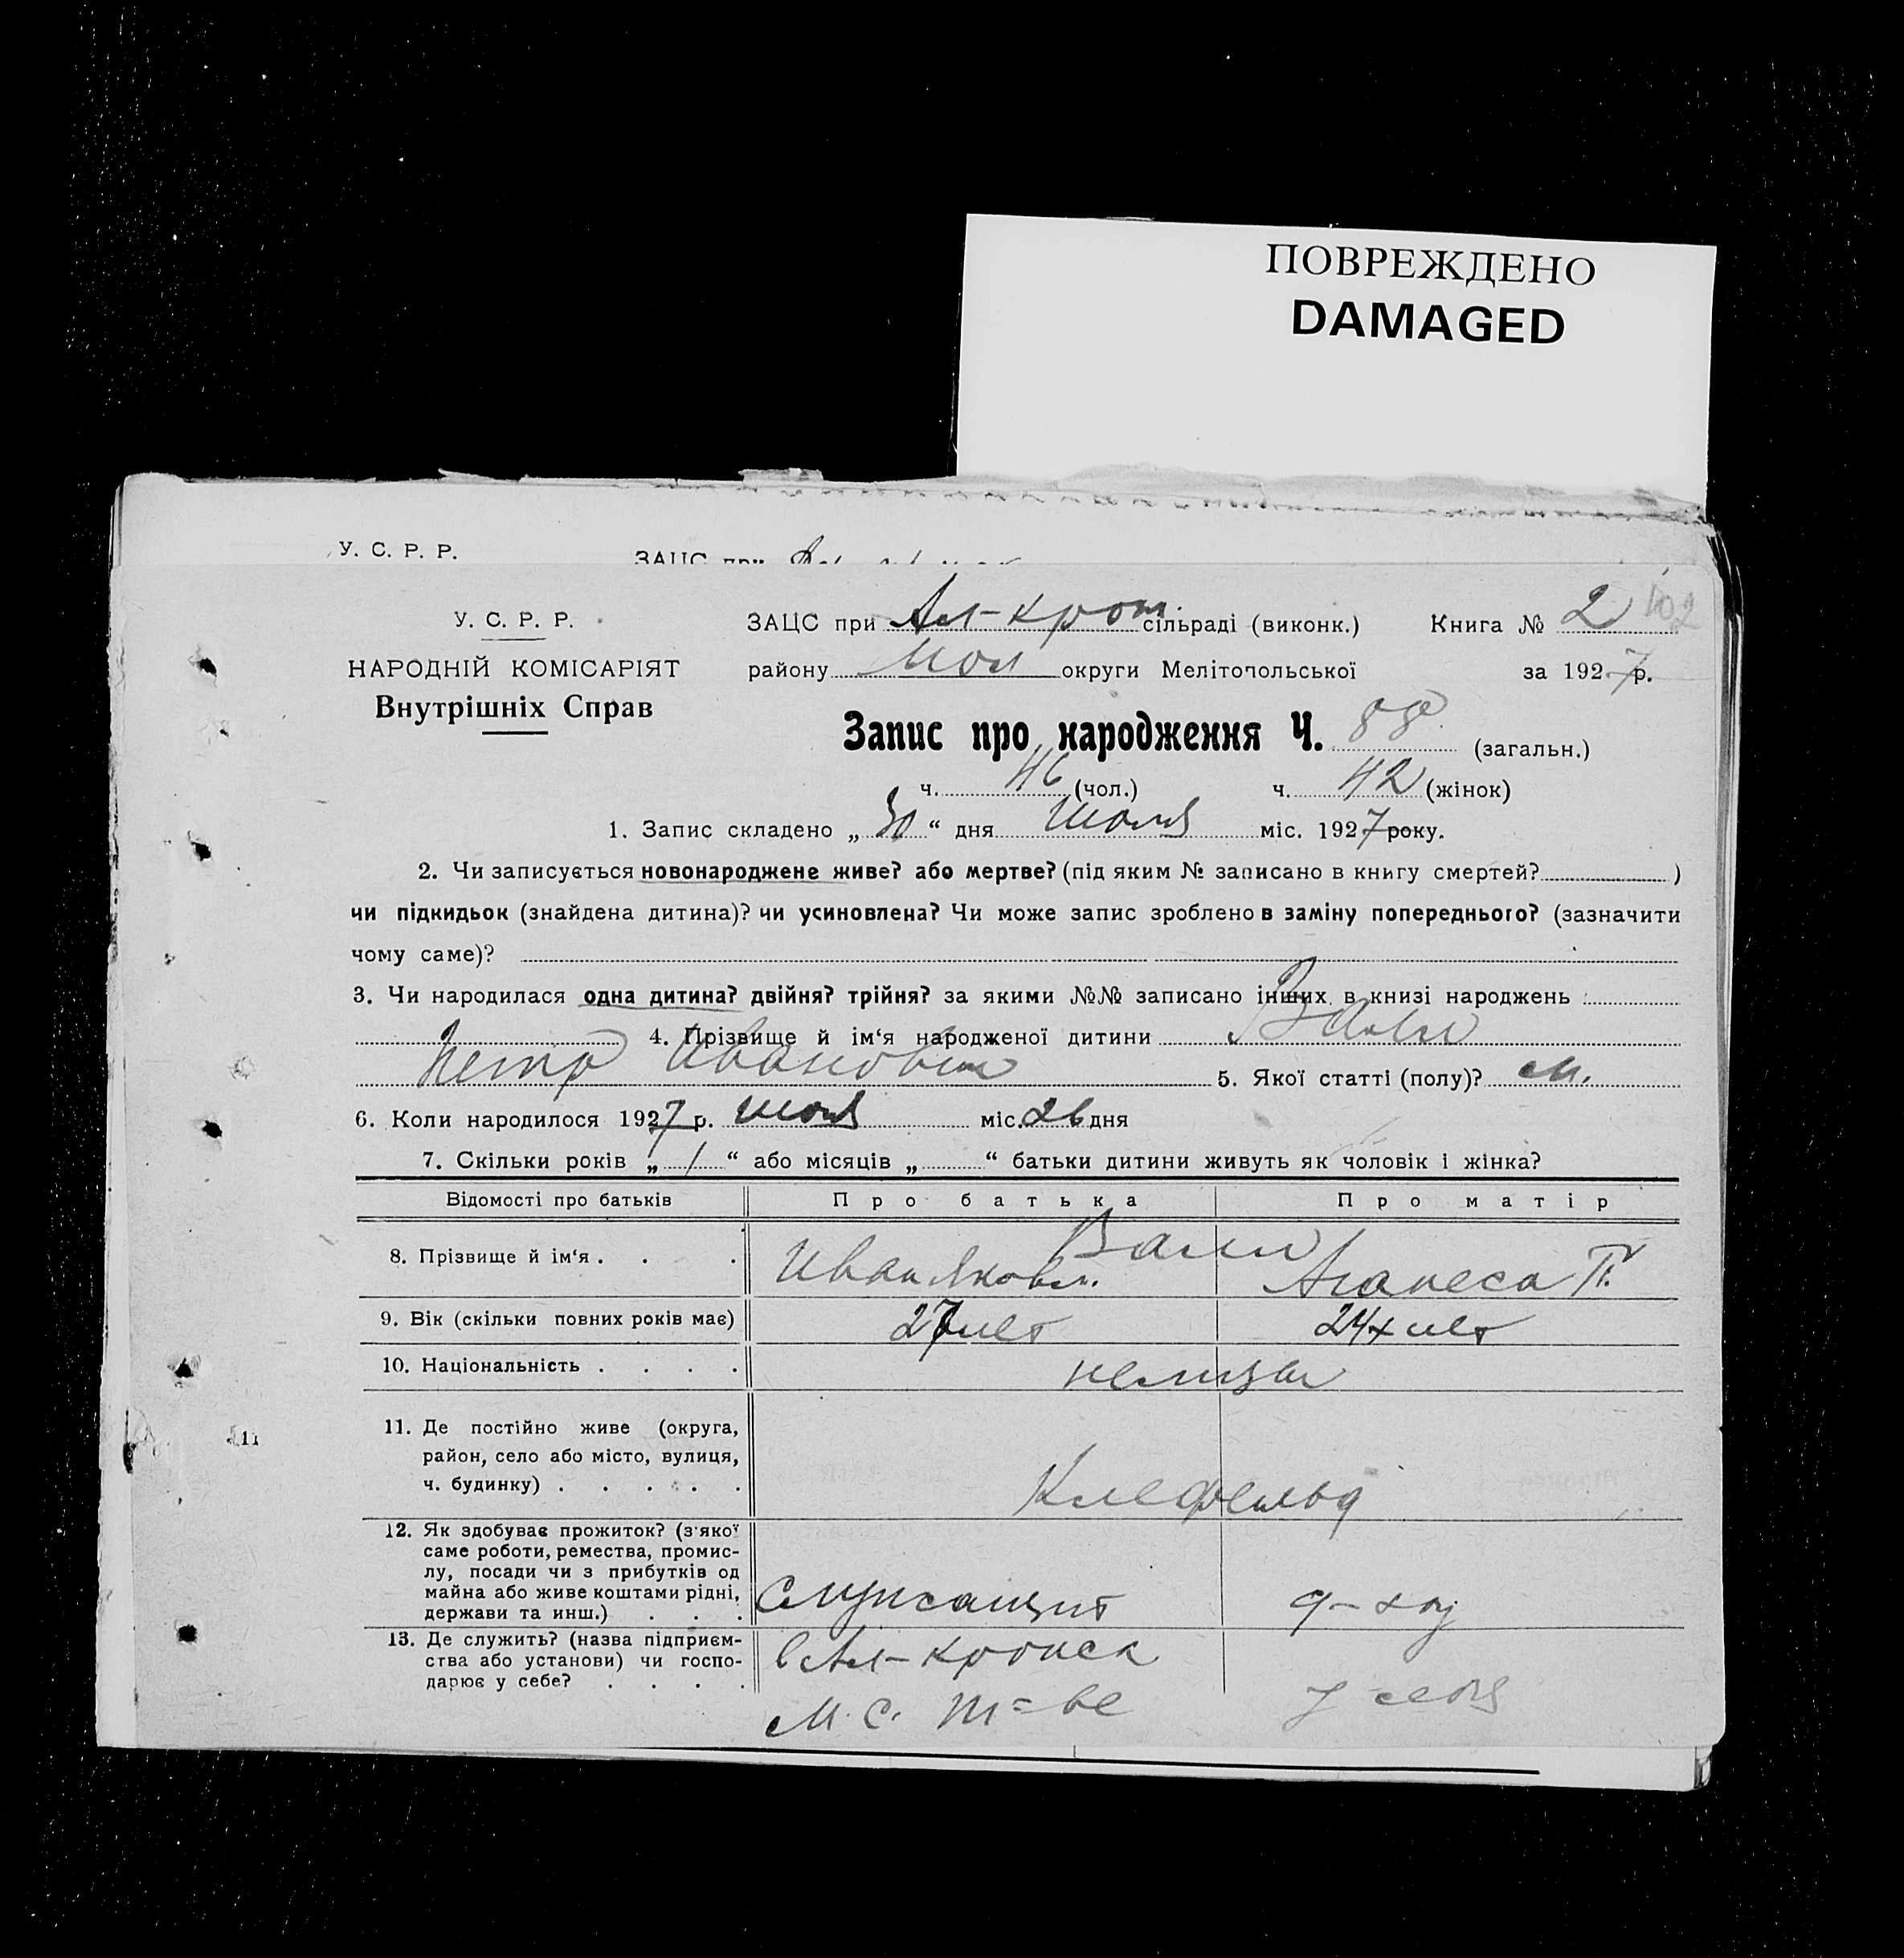 ПОВРЕЖДЕНО
DAMAGED
У. С. Р. Р.
ЗАЦС при
У. С. Р. Р.
НАРОДНІЙ КОМІСАРІЯТ
Внутрішніх Справ
ЗАЦС при Ал-крон. сільраді (виконк.) Книга № 2 102
району Мол округи Мелітопольської за 1927 р.
Запис про народження Ч. 88 (загальн.)
ч. 46 (чол.) ч. 42 (жінок)
1. Запис складено „30“ дня Июля міс. 1927 року.
2. Чи записується новонароджене живе? або мертве? (під яким № записано в книгу смертей? )
чи підкидьок (знайдена дитина)? чи усиновлена? Чи може запис зроблено в заміну попереднього? (зазначити
чому саме)?
3. Чи народилася одна дитина? двійня? трійня? за якими №№ записано інших в книзі народжень
4. Прізвище й ім‘я народженої дитини Валл
Петр Иванович 5. Якої статті (полу)? м.
6. Коли народилося 1927 р. Июля міс. 26 дня
7. Скільки років „1“ або місяців „ “ батьки дитини живуть як чоловік і жінка?
Відомості про батьків Про батька Про матір
8. Прізвище й ім‘я . . . Валл
Иван Яковл. Аганеса П.
9. Вік (скільки повних років має) 27 лет 24х лет
10. Національність . . . . немцы
11. Де постійно живе (округа,
район, село або місто, вулиця,
ч. будинку) . . . . . Клефельд
12. Як здобуває прожиток? (з'якої
саме роботи, ремества, промис-
лу, посади чи з прибутків од
майна або живе коштами рідні,
держави та инш.) . . . Служащий д-хоз
13. Де служить? (назва підприєм-
ства або установи) чи госпо-
дарює у себе? . . . .
в Ал-кронск
М. С. т=ве у себя
11